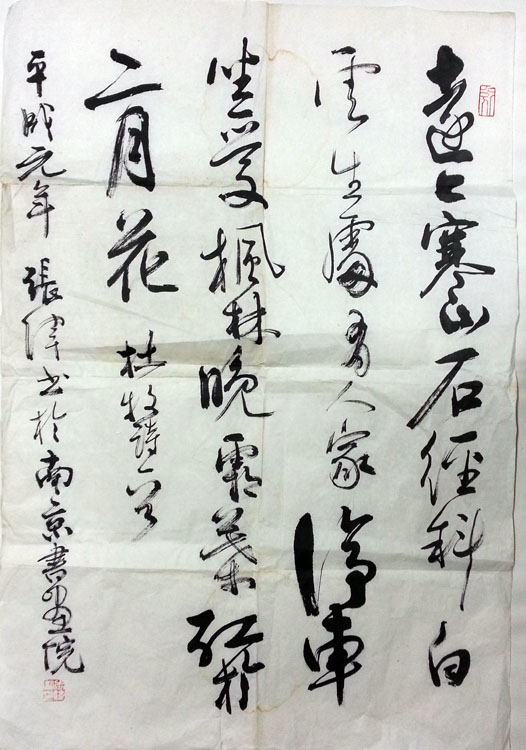 遠上寒山石徑斜白
雲生處有人家停車
坐愛楓林晚霜葉紅於
二月花 杜牧詩一首
平成元年 張偉书於南京書畫院